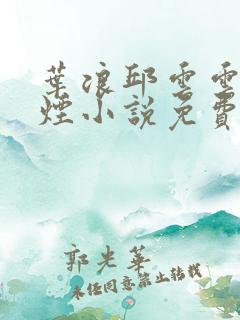 葉浪邱雲雲
煙小說免費
郭光華
未經同意禁止轉載